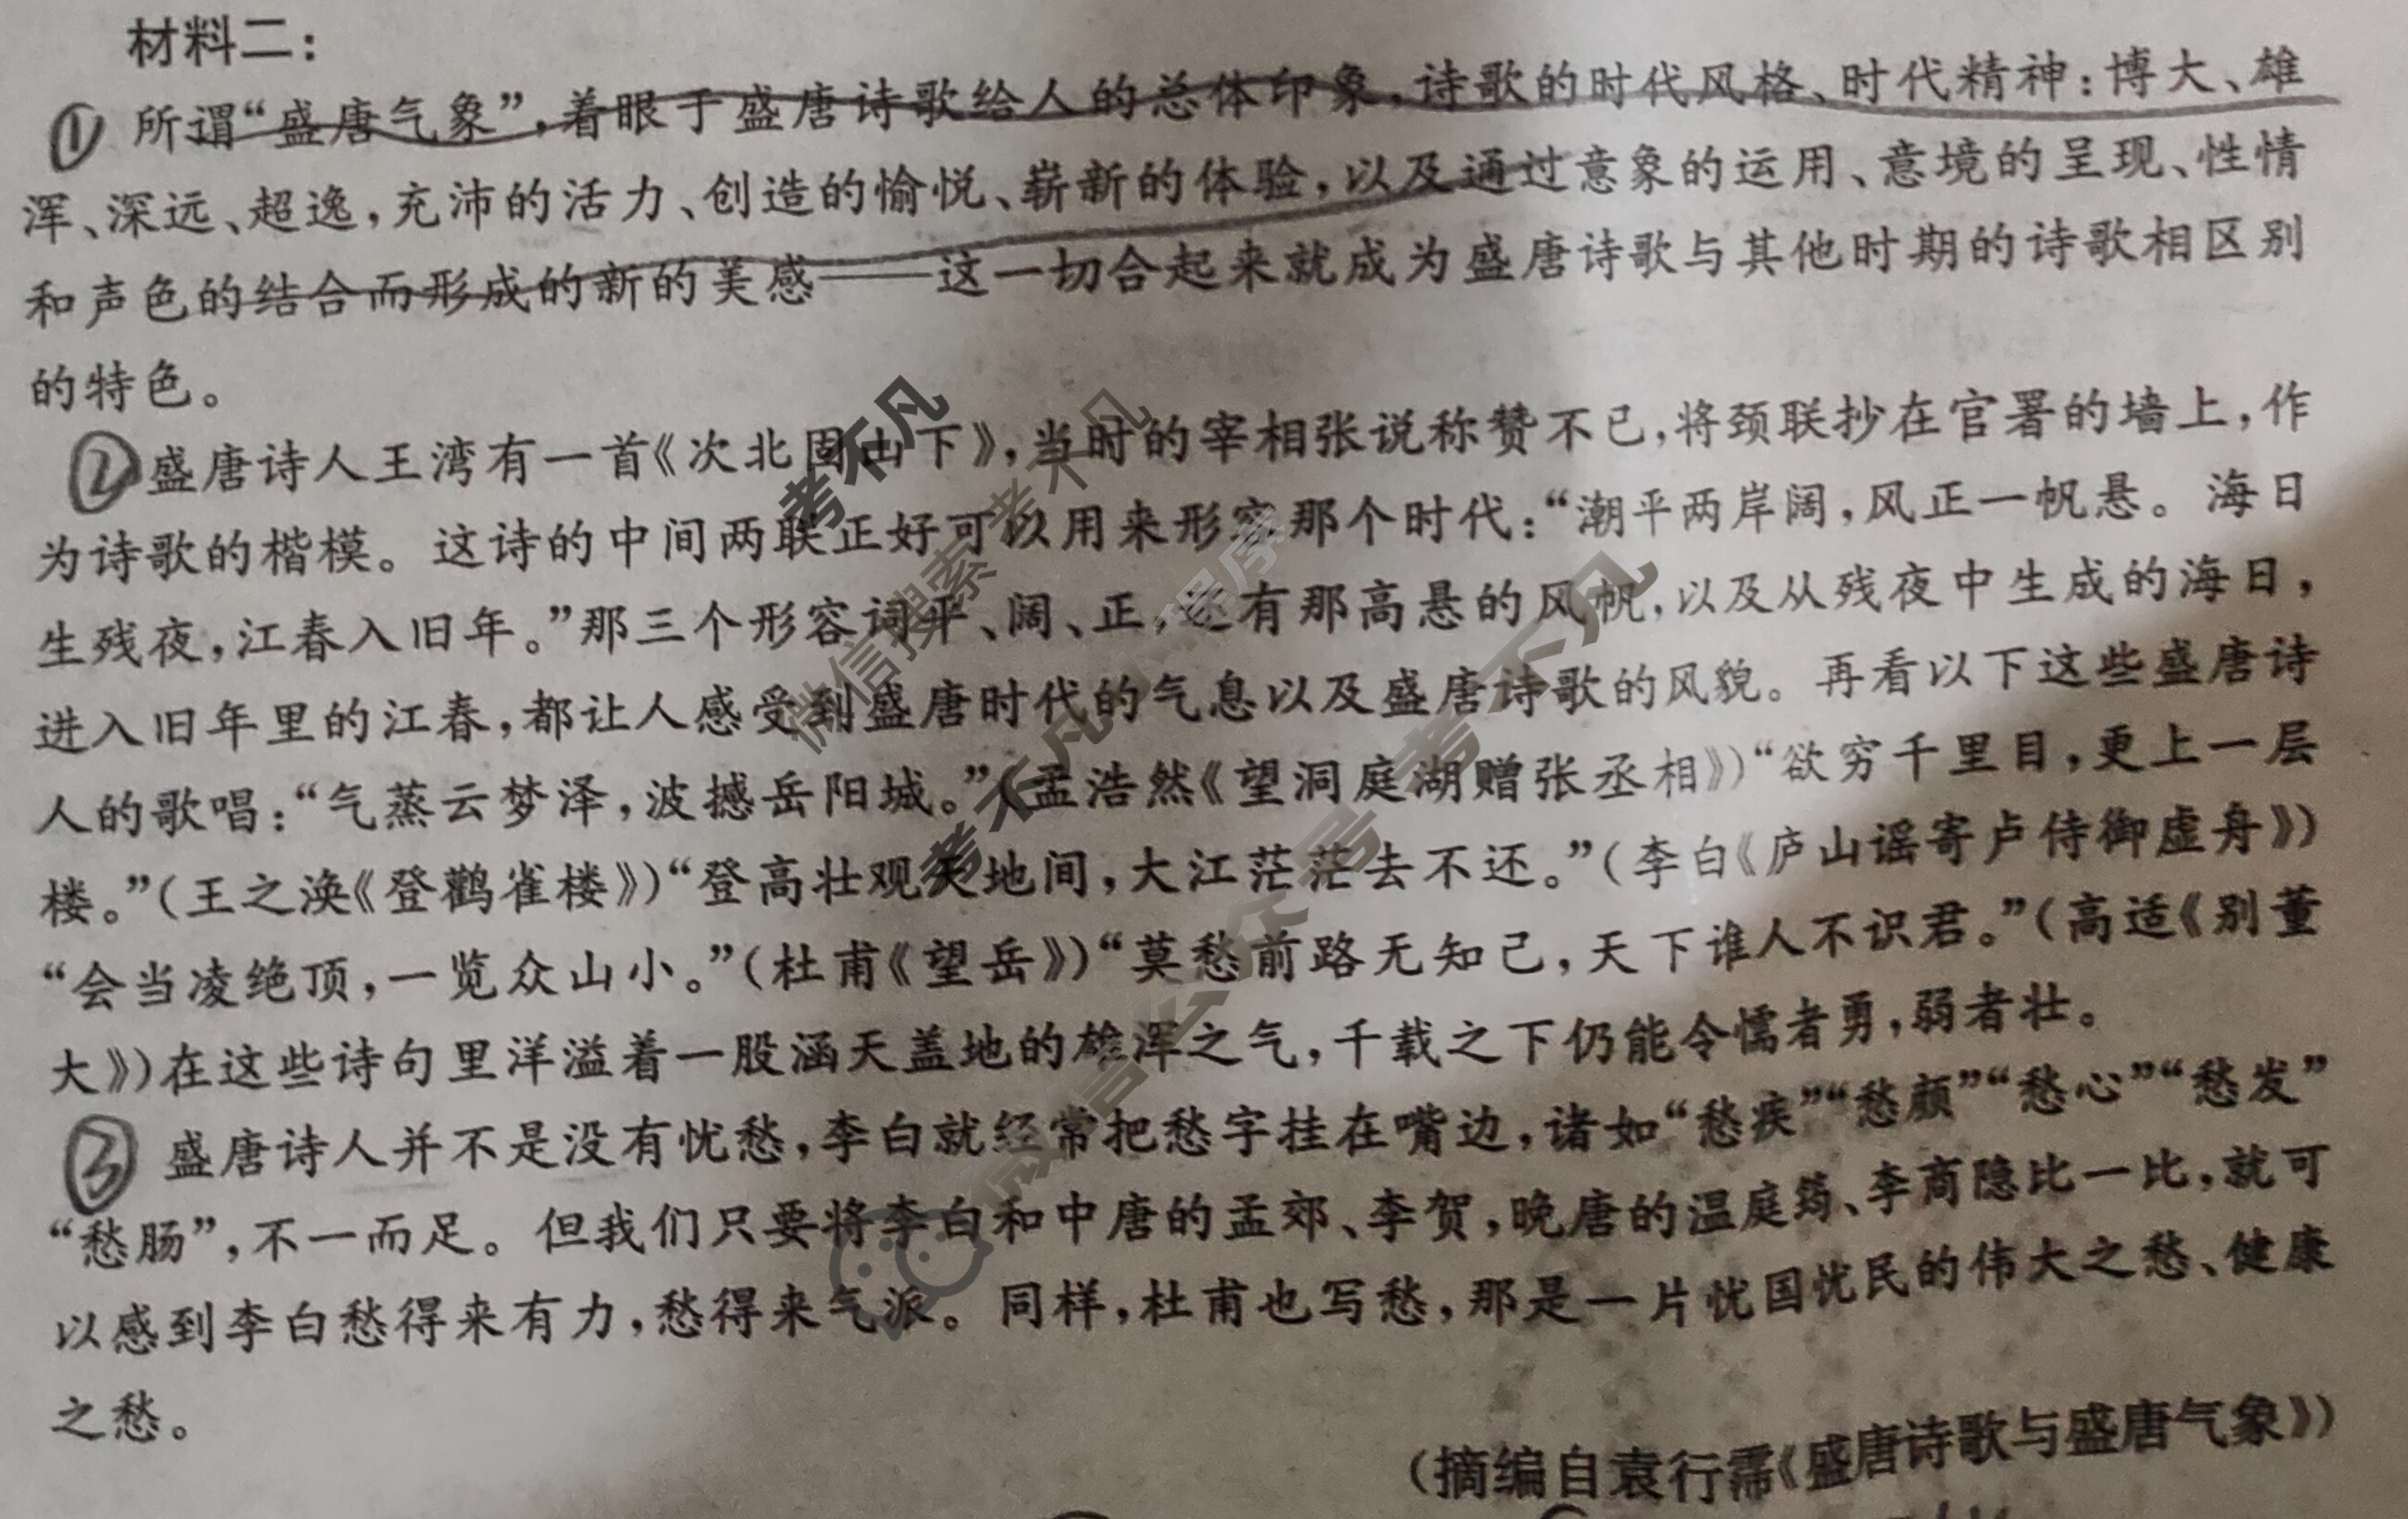 材料二：
① 所谓“盛唐气象”，着眼于盛唐诗歌给人的总体印象，诗歌的时代风格、时代精神：博大、雄
浑、深远、超逸，充沛的活力、创造的愉悦、崭新的体验，以及通过意象的运用、意境的呈现、性情
和声色的结合而形成的新的美感——这一切合起来就成为盛唐诗歌与其他时期的诗歌相区别
的特色。
② 盛唐诗人王湾有一首《次北固山下》，当时的宰相张说称赞不已，将颈联抄在官署的墙上，作
为诗歌的楷模。这诗的中间两联正好可以用来形容那个时代：“潮平两岸阔，风正一帆悬。海日
生残夜，江春入旧年。”那三个形容词平、阔、正，还有那高悬的风帆，以及从残夜中生成的海日，
进入旧年里的江春，都让人感受到盛唐时代的气息以及盛唐诗歌的风貌。再看以下这些盛唐诗
人的歌唱：“气蒸云梦泽，波撼岳阳城。”（孟浩然《望洞庭湖赠张丞相》）“欲穷千里目，更上一层
楼。”（王之涣《登鹳雀楼》）“登高壮观天地间，大江茫茫去不还。”（李白《庐山谣寄卢侍御虚舟》）
“会当凌绝顶，一览众山小。”（杜甫《望岳》）“莫愁前路无知己，天下谁人不识君。”（高适《别董
大》）在这些诗句里洋溢着一股涵天盖地的雄浑之气，千载之下仍能令懦者勇，弱者壮。
③ 盛唐诗人并不是没有忧愁，李白就经常把愁字挂在嘴边，诸如“愁疾”“愁颜”“愁心”“愁发”
“愁肠”，不一而足。但我们只要将李白和中唐的孟郊、李贺，晚唐的温庭筠、李商隐比一比，就可
以感到李白愁得来有力，愁得来气派。同样，杜甫也写愁，那是一片忧国忧民的伟大之愁、健康
之愁。
（摘编自袁行霈《盛唐诗歌与盛唐气象》）
考不凡
微信搜索 考不凡
考不凡 小程序
微信公众号 考不凡